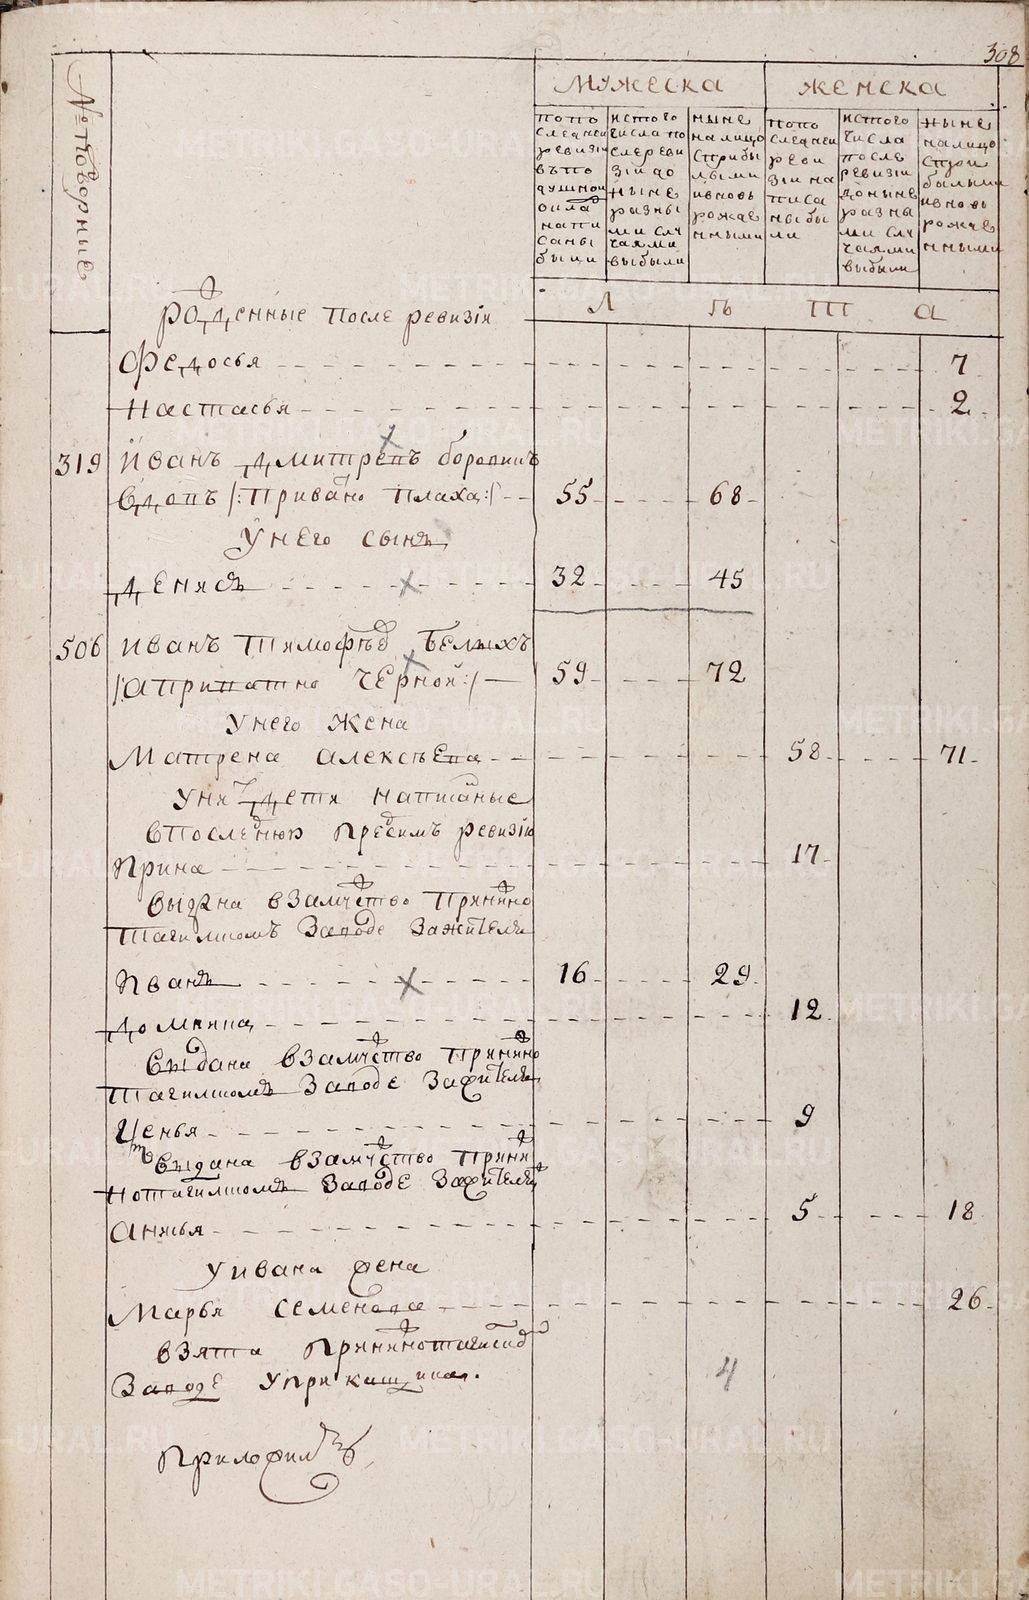 308
№ подворные
мужеска
женска
по по
следней
ревизіи
въ по
душной
окладъ
напи
саны
были
ис того
числа по
сле реви
зіи до
ныне
разны
ми слу
чаями
выбыли
ныне
налицо
с прибы
лыми
и вновь
рожде
нными
по по
следней
реви
зіи на
писа
ны бы
ли
ис того
числа
после
ревизіи
до ныне
разны
ми слу
чаями
выбыли
ныне
на лицо
с при
былыми
и вновь
рожде
нными
рожденные после ревизіи
л ѣ т а
Федосья 7
Настасья 2
319 Иванъ Дмитревъ
вдовъ 55 68
У него сынъ
Денисъ 32 45
506 Иванъ Тимофѣевъ Белыхъ
Черной 59 72
У него жена
Матрена Алексѣева 58 71
У них дети написаные
в последнюю пред симъ ревизію
Ирина 17
выдана в замужество при нижно
тагилскомъ заводе за жителя
Иванъ 16 29
Домника 12
выдана в замужество при нижно
тагилскомъ заводе за жителя
9
выдана в замужество при ниж
нотагилскомъ заводе за жителя
Анисья 5 18
У Ивана жена
Марья Семенова 26
взята при нижнотагилск
заводе у прикащика.
4